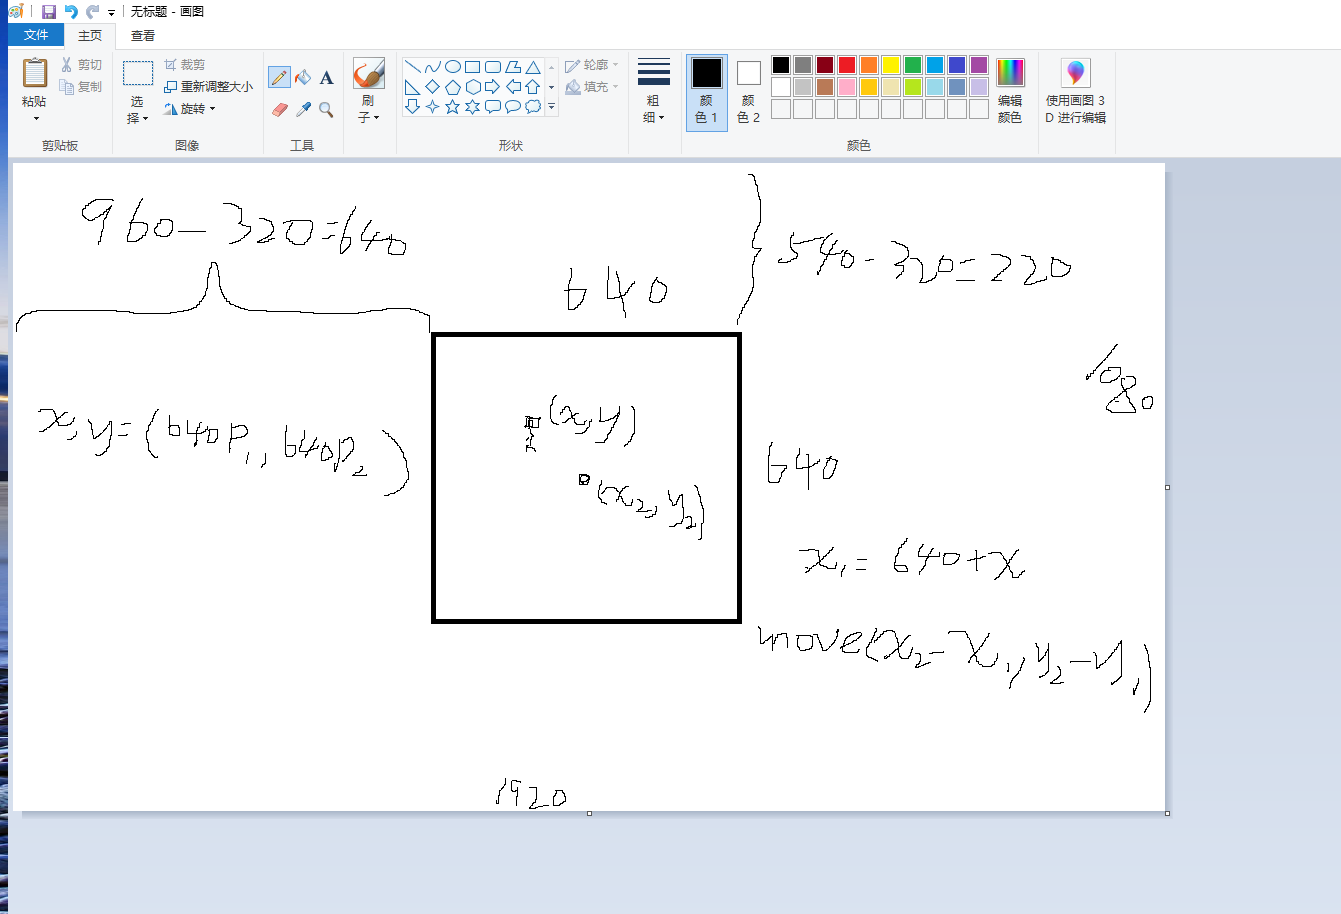 无标题 - 画图
文件 主页 查看
粘贴
剪切
复制
剪贴板
选择
裁剪
重新调整大小
旋转
图像
A
工具
刷子
轮廓
填充
形状
粗细
颜色 1
颜色 2
编辑颜色
颜色
使用画图 3D 进行编辑
960-320=640
540-320=220
640
1080
(x,y)
x,y=(640P1,640P2)
640
(x2,y2)
x1=640+x
move(x2-x1,y2-y1)
1920